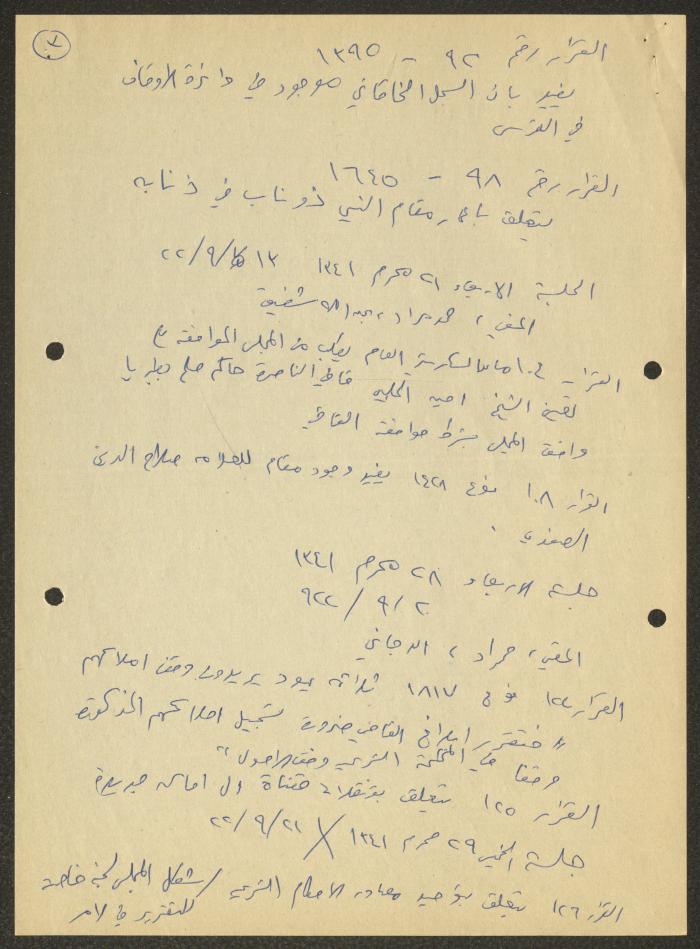 ٣
القرار رقم ٩٢ - ١٣٩٥
يفيد بان السجل الخاقاني موجود في دائرة الاوقاف
في القدس
القرار رقم ٩٨ - ١٦٤٥
يتعلق مقام النبي ذو ناب في ذنابه
الجلسة الاربعاء ٢١ محرم ١٣٤١ ١٣ /٩/٢٢
المفتي، مراد، شفيق
القرار ١٠٤ السكرتير العام يطلب من المجلس الموافقة ع
الشيخ امين قاضي الناصرة حاكم صلح
وافق المجلس بشرط موافقة القاضي
القرار ١٠٨ نوع ١٤٢٨ يفيد وجود مقام للعلامه صلاح الدين
الصفدي.
جلسة الاربعاء ٢٨ محرم ١٣٤١
٢٠/٩/٩٢٢
المفتي، مراد، الدجاني
القرار ١٢٢ نوع ١٨١٧ ثلاثة يهود يريدون وقف املاكهم
"فتقرر القاضي ضرورة تسجيل املاكهم المذكورة
وقفا في المحكمة الشرعية وفق الاصول"
القرار ١٢٥ يتعلق اماكن جديدة
جلسة الخميس ٢٩ محرم ١٣٤١ ٢١/٩/٢٢
القرار ١٢٦ يتعلق بتوحيد مصادر الاحكام الشرعية / شكل المجلس لجنة خاصة
للتقرير في الامر